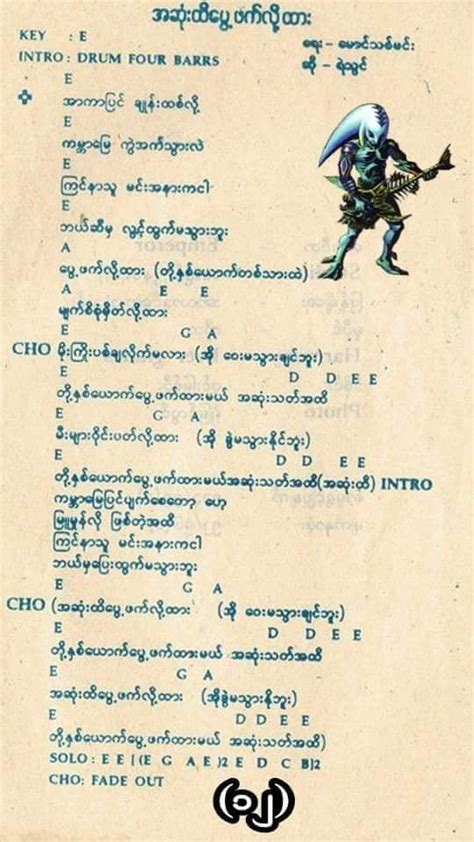 အဆုံးထိပွေ့ဖက်လို့ထား
KEY : E
ရေး – မောင်သစ်မင်း
INTRO : DRUM FOUR BARRS
ဆို – ရဲသွင်
E
အာကာပြင် ချုန်းထစ်လို့
E
ကမ္ဘာမြေ ကွဲအက်သွားလဲ
E
ကြင်နာသူ မင်းအနားကငါ
E
ဘယ်ဆီမှ လွှင့်ထွက်မသွားဘူး
A
ပွေ့ဖက်လို့ထား (တို့နှစ်ယောက်တစ်သားထဲ)
A E E
မျက်စိစုံမှိတ်လို့ထား
E G A
CHO မိုးကြိုးပစ်ချလိုက်မလား (အို ဝေးမသွားချင်ဘူး)
E D D E E
တို့နှစ်ယောက်ပွေ့ဖက်ထားမယ် အဆုံးသတ်အထိ
E G A
မီးများဝိုင်းပတ်လို့ထား (အို ခွဲမသွားနိုင်ဘူး)
E D D E E
တို့နှစ်ယောက်ပွေ့ဖက်ထားမယ်အဆုံးသတ်အထိ(အဆုံးထိ) INTRO
ကမ္ဘာမြေပြင်ပျက်စေတော့ ဟေ့
မြူမှုန်လို ဖြစ်တဲ့အထိ
ကြင်နာသူ မင်းအနားကငါ
ဘယ်မှပြေးထွက်မသွားဘူး
E G A
CHO (အဆုံးထိပွေ့ဖက်လို့ထား (အို ဝေးမသွားချင်ဘူး)
E D D E E
တို့နှစ်ယောက်ပွေ့ဖက်ထားမယ် အဆုံးသတ်အထိ
E G A
အဆုံးထိပွေ့ဖက်လို့ထား (အိုခွဲမသွားနိုဘူး)
E D D E E
တို့နှစ်ယောက်ပွေ့ဖက်ထားမယ် အဆုံးသတ်အထိ)
SOLO : E E | (E G A E )2 E D C B]2
CHO: FADE OUT
(၁၂)